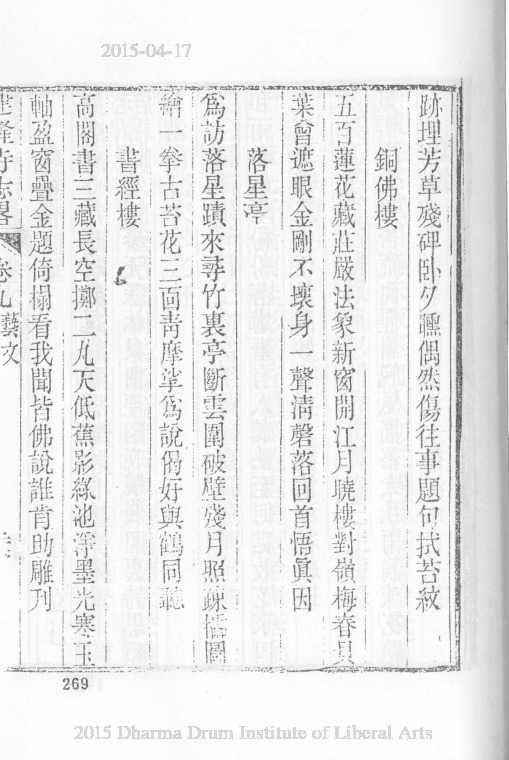 2015-04-17
跡埋芳草殘碑臥夕曛偶然傷往事題句拭苔紋
銅佛樓
五百蓮花藏莊嚴法象新窗開江月曉樓對嶺梅春貝
葉會遮眼金剛不壞身一聲清磬落回首悟眞因
落星亭
爲訪落星蹟來尋竹裏亭斷雲圍破壁殘月照疎櫺圖
繪一拳古苔花三面靑摩挲爲說偈好與鶴同聽
書經樓
高閣書三藏長空擲二丸天低蕉影綠池浮墨光寒玉
軸盈窗疊金題倚榻看我聞皆佛說誰肯助雕刊
寺志畧
卷九藝文
269
2015 Dharma Drum Institute of Liberal Arts